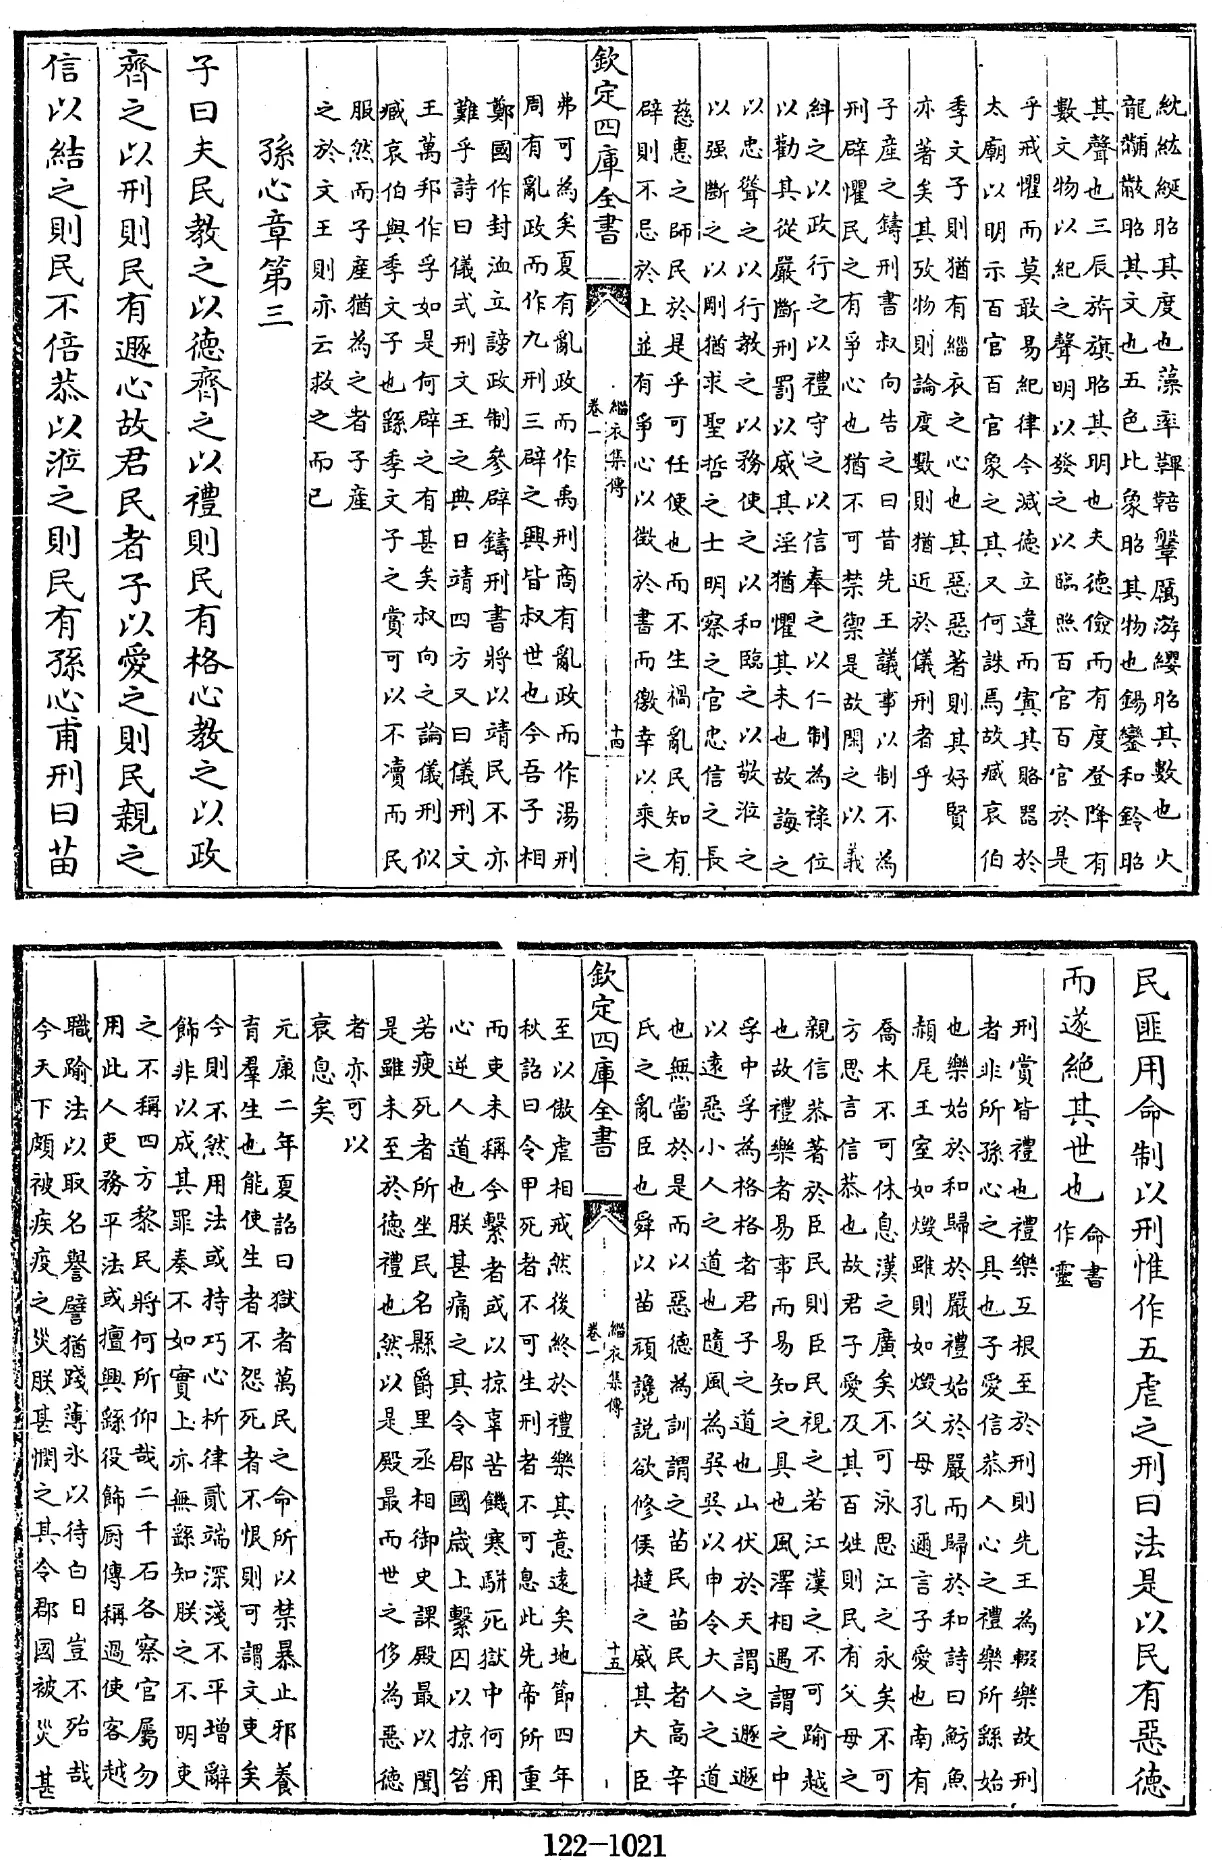 紞紘綖昭其度也藻率鞞鞛鞶厲游纓昭其數也火
龍黼黻昭其文也五色比象昭其物也錫鸞和鈴昭
其聲也三辰旂旗昭其明也夫德儉而有度登降有
數文物以紀之聲明以發之以臨照百官百官於是
乎戒懼而莫敢易紀律今滅德立違而寘其賂器於
太廟以明示百官百官象之其又何誅焉故臧哀伯
季文子則猶有緇衣之心也其惡惡著則其好賢
亦著矣其攷物則論度數則猶近於儀刑者乎
子產之鑄刑書叔向告之曰昔先王議事以制不為
刑辟懼民之有爭心也猶不可禁禦是故閑之以義
糾之以政行之以禮守之以信奉之以仁制為祿位
以勸其從嚴斷刑罰以威其淫猶懼其未也故誨之
以忠聳之以行教之以務使之以和臨之以敬涖之
以强斷之以剛猶求聖哲之士明察之官忠信之長
慈惠之師民於是乎可任使也而不生禍亂民知有
辟則不忌於上並有爭心以徵於書而徼幸以乘之
欽定四庫全書
緇衣集傳
卷一
十四
弗可為矣夏有亂政而作禹刑商有亂政而作湯刑
周有亂政而作九刑三辟之興皆叔世也今吾子相
鄭國作封洫立謗政制參辟鑄刑書將以靖民不亦
難乎詩曰儀式刑文王之典日靖四方又曰儀刑文
王萬邦作孚如是何辟之有甚矣叔向之論儀刑似
臧哀伯與季文子也繇季文子之賞可以不凟而民
服然而子產猶為之者子產
之於文王則亦云救之而已
孫心章第三
子曰夫民教之以德齊之以禮則民有格心教之以政
齊之以刑則民有遯心故君民者子以愛之則民親之
信以結之則民不倍恭以涖之則民有孫心甫刑曰苗
民匪用命制以刑惟作五虐之刑曰法是以民有惡德
而遂絕其世也
命書
作靈
刑賞皆禮也禮樂互根至於刑則先王為輟樂故刑
者非所孫心之具也子愛信恭人心之禮樂所繇始
也樂始於和歸於嚴禮始於嚴而歸於和詩曰魴魚
頳尾王室如燬雖則如燬父母孔邇言子愛也南有
喬木不可休息漢之廣矣不可泳思江之永矣不可
方思言信恭也故君子愛及其百姓則民有父母之
親信恭著於臣民則臣民視之若江漢之不可踰越
也故禮樂者易事而易知之具也風澤相遇謂之中
孚中孚為格格者君子之道也山伏於天謂之遯遯
以遠惡小人之道也隨風為巽巽以申令大人之道
也無當於是而以惡德為訓謂之苗民苗民者高辛
氏之亂臣也舜以苗頑讒説欲修侯撻之威其大臣
欽定四庫全書
緇衣集傳
卷一
十五
至以傲虐相戒然後終於禮樂其意遠矣地節四年
秋詔曰令甲死者不可生刑者不可息此先帝所重
而吏未稱今繫者或以掠辜苦饑寒瘐死獄中何用
心逆人道也朕甚痛之其令郡國歲上繫囚以掠笞
若瘐死者所坐民名縣爵里丞相御史課殿最以聞
是雖未至於德禮也然以是殿最而世之侈為惡德
者亦可以
衰息矣
元康二年夏詔曰獄者萬民之命所以禁暴止邪養
育羣生也能使生者不怨死者不恨則可謂文吏矣
今則不然用法或持巧心析律貳端深淺不平增辭
飾非以成其罪奏不如實上亦無繇知朕之不明吏
之不稱四方黎民將何所仰哉二千石各察官屬勿
用此人吏務平法或擅興繇役飾厨傳稱過使客越
職踰法以取名譽譬猶踐薄氷以待白日豈不殆哉
今天下頗被疾疫之災朕甚憫之其令郡國被災甚
122—1021